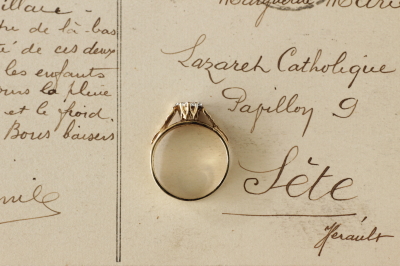 illare -
tre de là-bas
té de ces deux
les enfants
ous la pluie
et le froid.
Bons baisers
Marguerite Mari
Lazareh Catholique
Papillon 9
Sète
Hérault